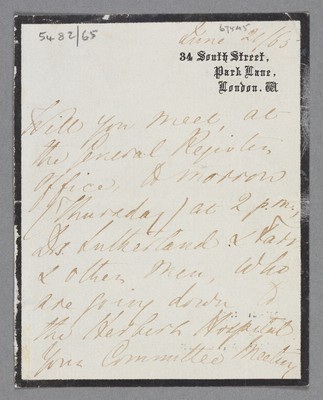 5482/65
67445
June 21/65
34 South Street,
Park Lane,
London. W.
Will you meet, at
the General Register
Office, to morrow
(Thursday) at 2 p.m.,
Drs. Sutherland & Farr
& other men, who
are going down to
the Herbert Hospital
Your Committee Meeting